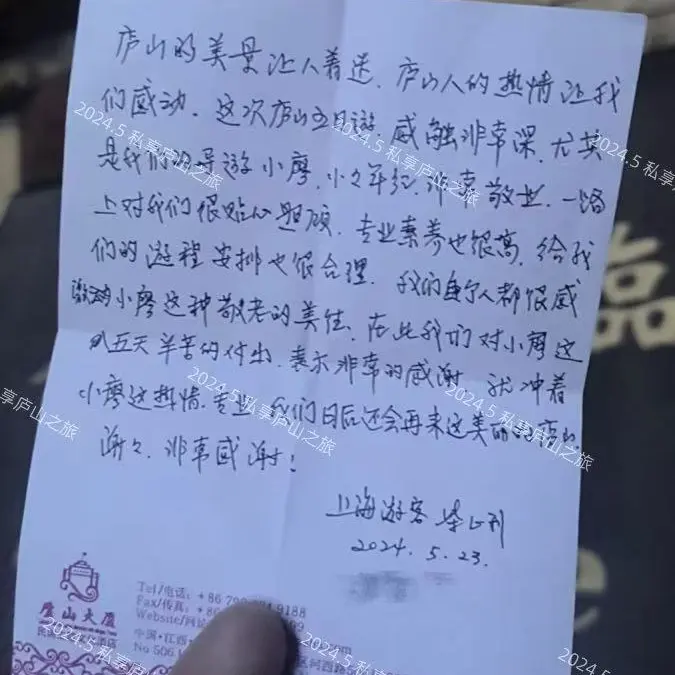 庐山的美景让人着迷、庐山人的热情让我
们感动、这次庐山五日游、感触非常深、尤其
是我们的导游小廖、小小年纪、非常敬业、一路
上对我们很贴心照顾、专业素养也很高、给我
们的游程安排也很合理、我的家人都很感
激小廖这种敬老的美德、在此我们对小廖这
五天辛苦的付出、表示非常的感谢、就冲着
小廖这热情、专业、我们日后还会再来这美丽的庐山、
谢々、非常感谢!
上海游客
2024. 5. 23.
庐山大厦
Tel/电话: +86 79 9188
Fax/传真: +86
Website/网站
中国·江西·
No 506
2024.5 私享庐山之旅
2024.5 私享庐山之旅
2024.5 私享庐山之旅
2024.5 私享庐山之旅
2024.5 私享庐山之旅
2024.5 私享庐山之旅
享庐山之旅